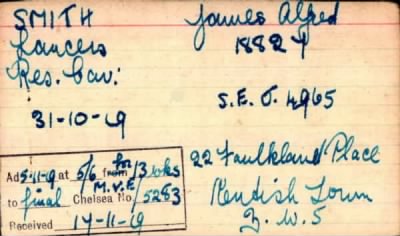 SMITH James Alfred
Lancers 18824
Res. Cav:
S.E.J. 4965
31-10-19
22 Faulkland Place
Kentish Town
N.W.5
Ad 5-11-19 at 5/6 from for 13 wks
M.V.E
to final Chelsea No. 5283
Received 17-11-19